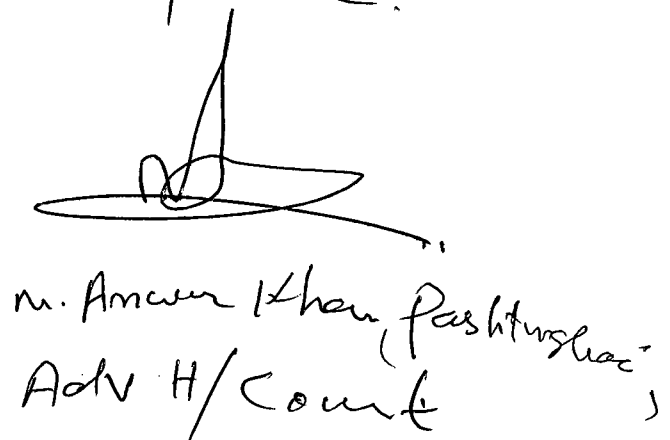 M. Anwer Khan, Pashtunghar,
Adv H/Court